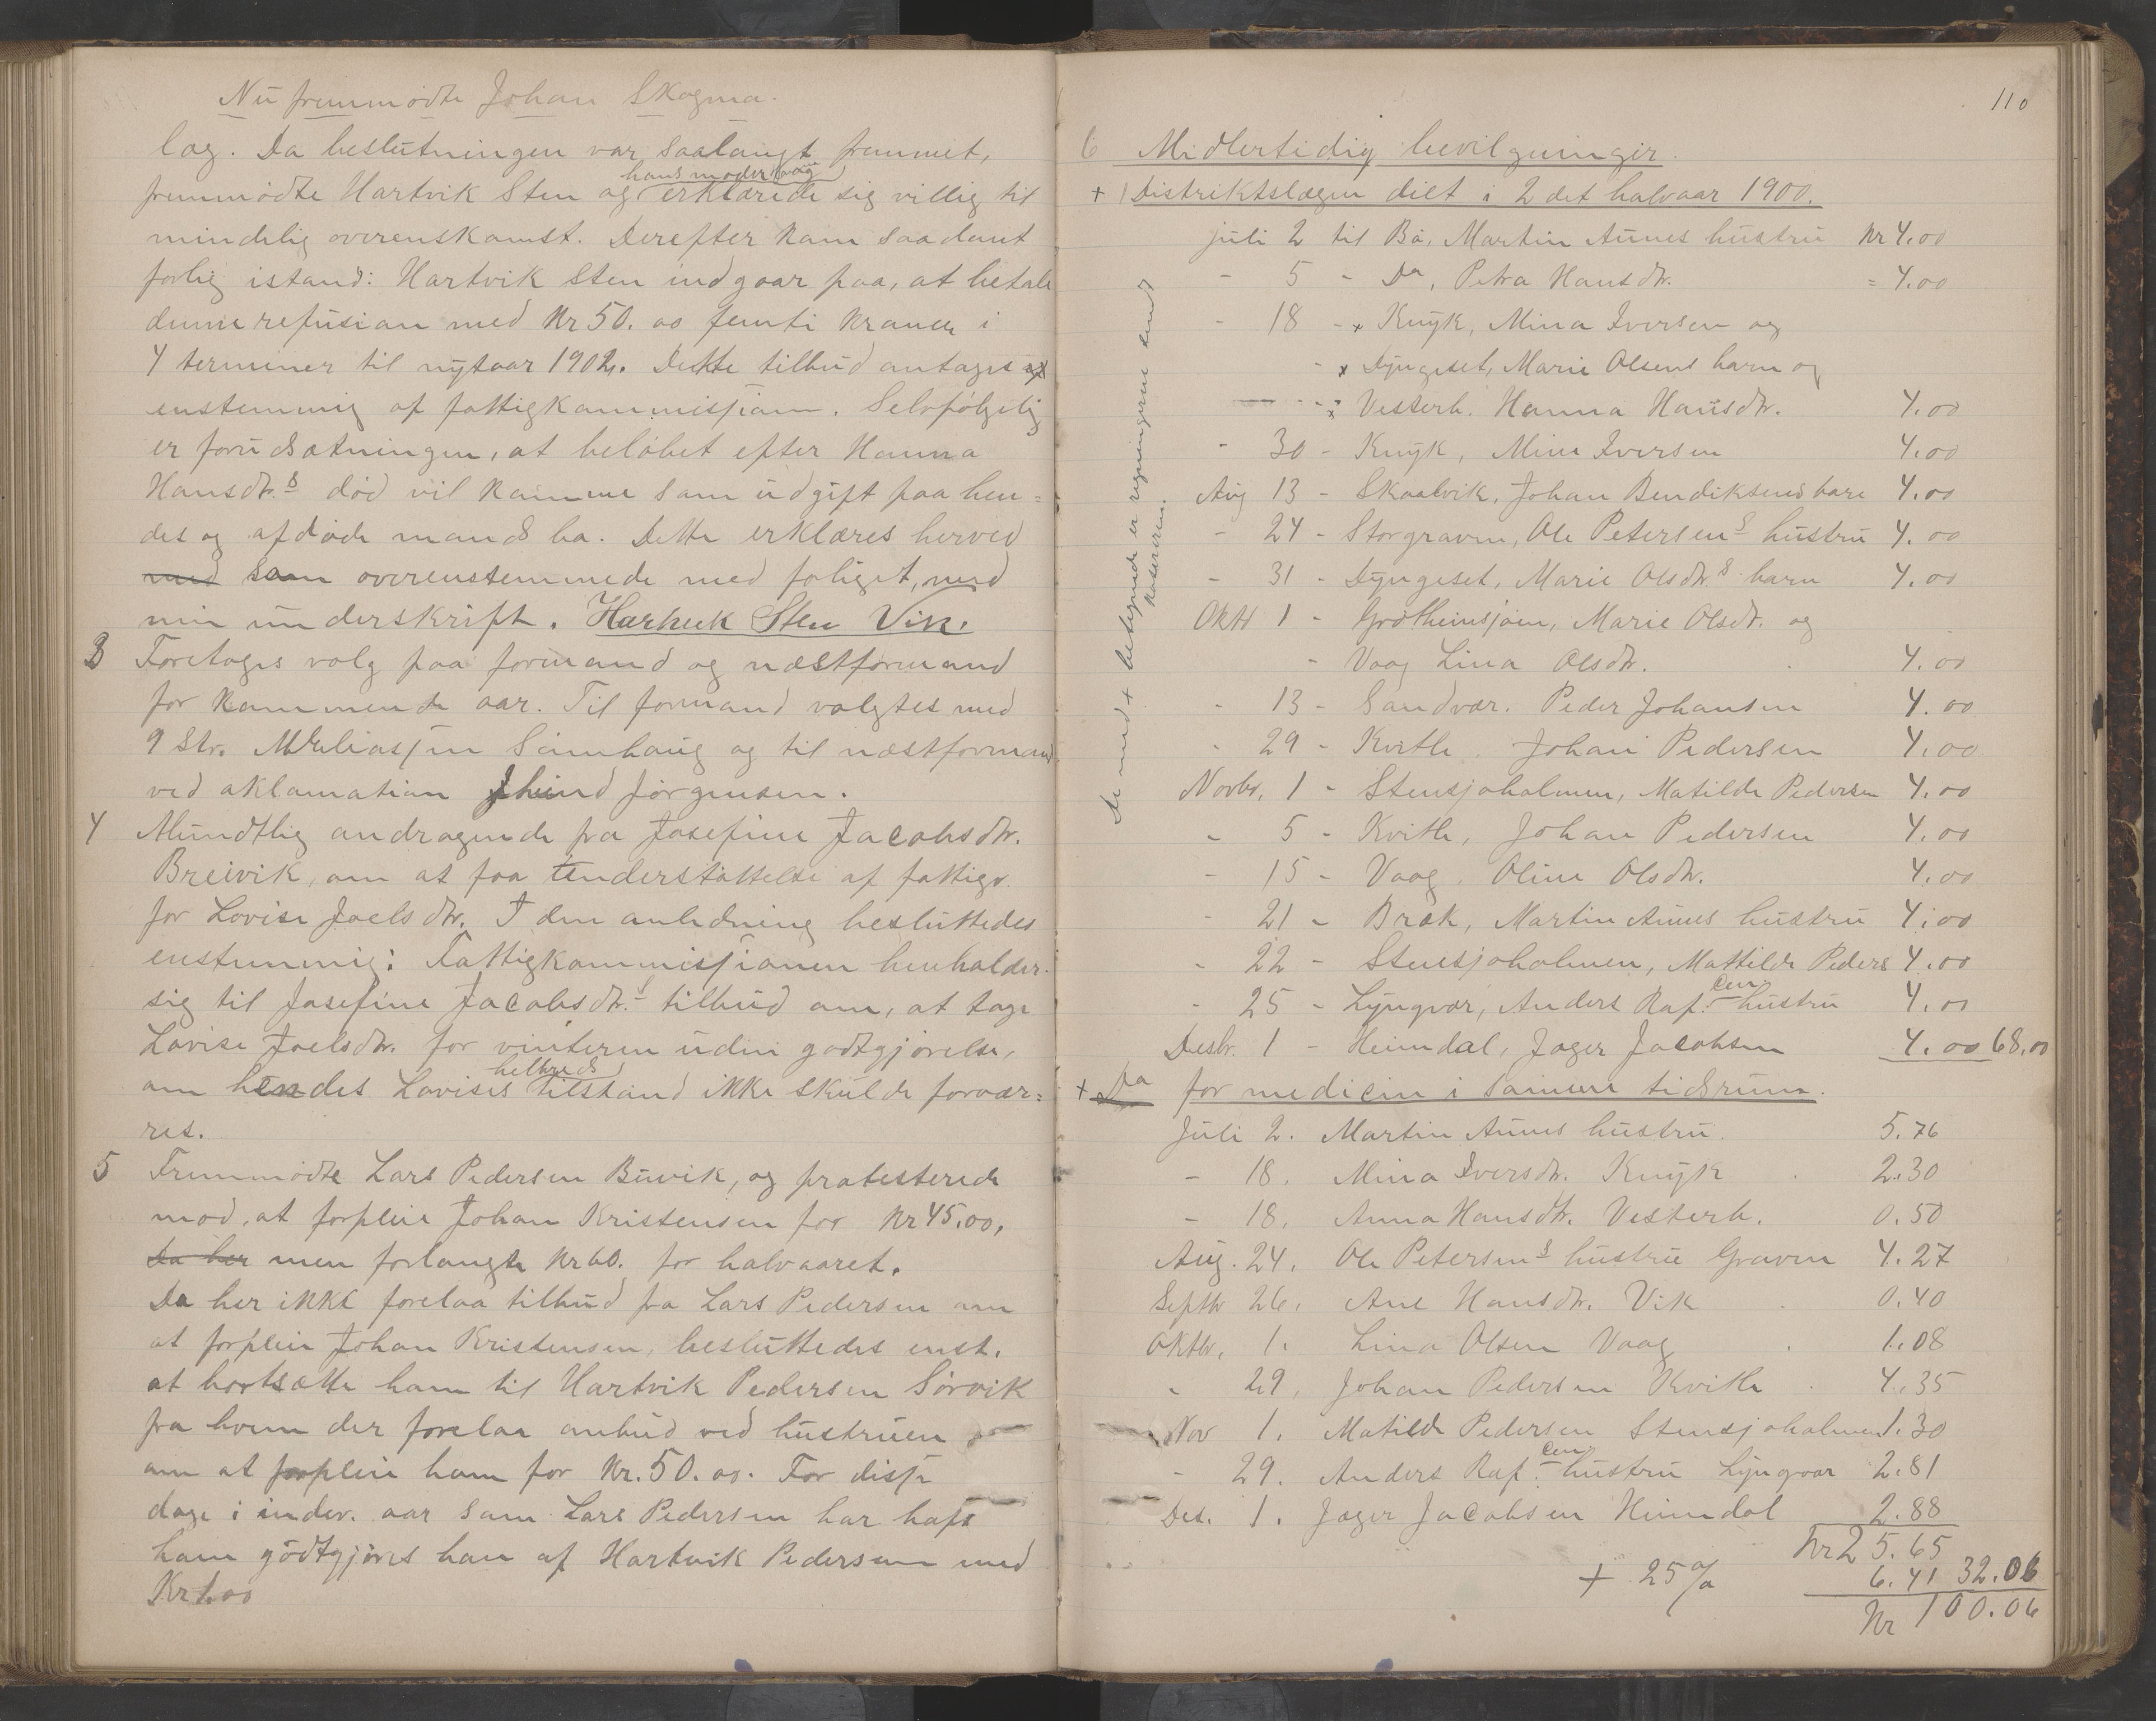 Nu fremmødte Johan Skogmo.
lag. Da beslutningen var saalangt fremmet,
hans moder og
fremmødte Hartvik Sten og erklærede sig villig til
mindelig overenskomst. Derefter kom saadant
forlig istand: Hartvik Sten indgaar paa, at betale
denne refusion med Kr 50.00 femti kroner i
4 terminer til nytaar 1902. Dette tilbud antages af
enstemmig af fattigkommissjion. Selvfølgelig
er forudsætningen, at beløbet efter Hanna
Hansdtr.s død vil komme som udgift paa hen=
des og afdøde mands bo. Dette erklæres herved
med som overenstemmede med forliget, med
min underskrift. Hartvik Sten Vik.
3 Foretoges valg paa formand og næstformand
for kommende aar. Til formand valgtes med
9 Str. M Eliassen Sømhaug og til næstformand
ved aklamation Jørgensen.
4 Mundtlig andragende fra Josefine Jacobsdtr.
Breivik, om at faa understøttelse af fattigv.
for Lovise Joelsdtr. I den anledning besluttedes
enstemmig: Fattigkommissjionen henholder
sig til Josefine Jacobsdtr.s tilbud om, at tage
Lovise Joelsdtr. for vinteren uden godtgjørelse,
helbreds
om hendes Lovises tilstand ikke skulde forvær=
res.
5 Fremmødte Lars Pedersen Buvik, og protesterede
mod, at forpleie Johan Kristensen for Kr 45.00,
Da her men forlangte Kr 60. for halvaaret.
Da her ikke forelaa tilbud fra Lars Pedersen om
at forpleie Johan Kristensen, besluttedes enst.
at bortsætte ham til Hartvik Pedersen Sørvik
fra hvem der forelaa anbud ved hustruen
om at forpleie ham for Kr. 50.00. For disse
dage i indev. aar som Lars Pedersen har haft
ham godtgjøres han af Hartvik Pedersen med
Kr 1.00
110
6 Midlertidig bevilgninger.
+ Distriktslægen diet i 2det halvaar 1900.
Juli 2 til Bø, Martin Aunes hustru Kr 4.00
- 5 - Do, Petra Hansdtr. = 4.00
- 18 - x Knyk, Mina Iversen og
- x Dyngeset, Marie Olsens barn og
- x Vesterb. Hanna Hansdtr. 4.00
- 30 - Knyk, Mina Iversen 4.00
Aug 13 - Skaalvik, Johan Bendiksens barn 4.00
- 24 - Storgraven, Ole Petersens hustru 4.00
- 31 - Dyngeset, Marie Olsdtr.s barn 4.00
Oktb 1 - Grøtheimsjøen, Marie Olsdtr. og
- Vaag Lina Olsdtr. 4.00
- 13 - Sandvær. Peder Johansen 4.00
- 29 - Kvitle. Johan Pedersen 4.00
Novbr. 1 - Stensjøholmen, Matilde Pedersen 4.00
- 5 - Kvitle, Johan Pedersen 4.00
- 15 - Vaag. Oline Olsdtr. 4.00
- 21 - Bræk, Martin Aunes hustru 4.00
- 22 - Stensjøholmen, Mattilde Peders 4.00
- 25 - Lyngvær, Anders Raf. hustru 4.00
Desbr. 1 - Heimdal, Jager Jacobsen 4.00 68.00
+ Do for medicin i samme tidsrum.
Juli 2. Martin Aunes hustru. 5.76
- 18. Mina Iversdtr. Knyk 2.30
- 18. Anna Hansdtr. Vesterb. 0.50
Aug. 24. Ole Petersens hustru Graven 4.27
Septbr 26. Ane Hansdtr. Vik 0.40
Oktbr. 1. Lina Olsen Vaag 1.08
- 29. Johan Pedersen Kvitle 4.35
Nov 1. Matilde Pedersen Stensjøholmen 1.30
- 29. Anders Raf. hustru Lyngvær 2.81
Des. 1. Jæger Jacobsen Heimdal 2.88
Kr 25.65
+ 25% 6.41 32.06
Kr 100.06
De med + betegnede er regningerne sendt
kassereren.